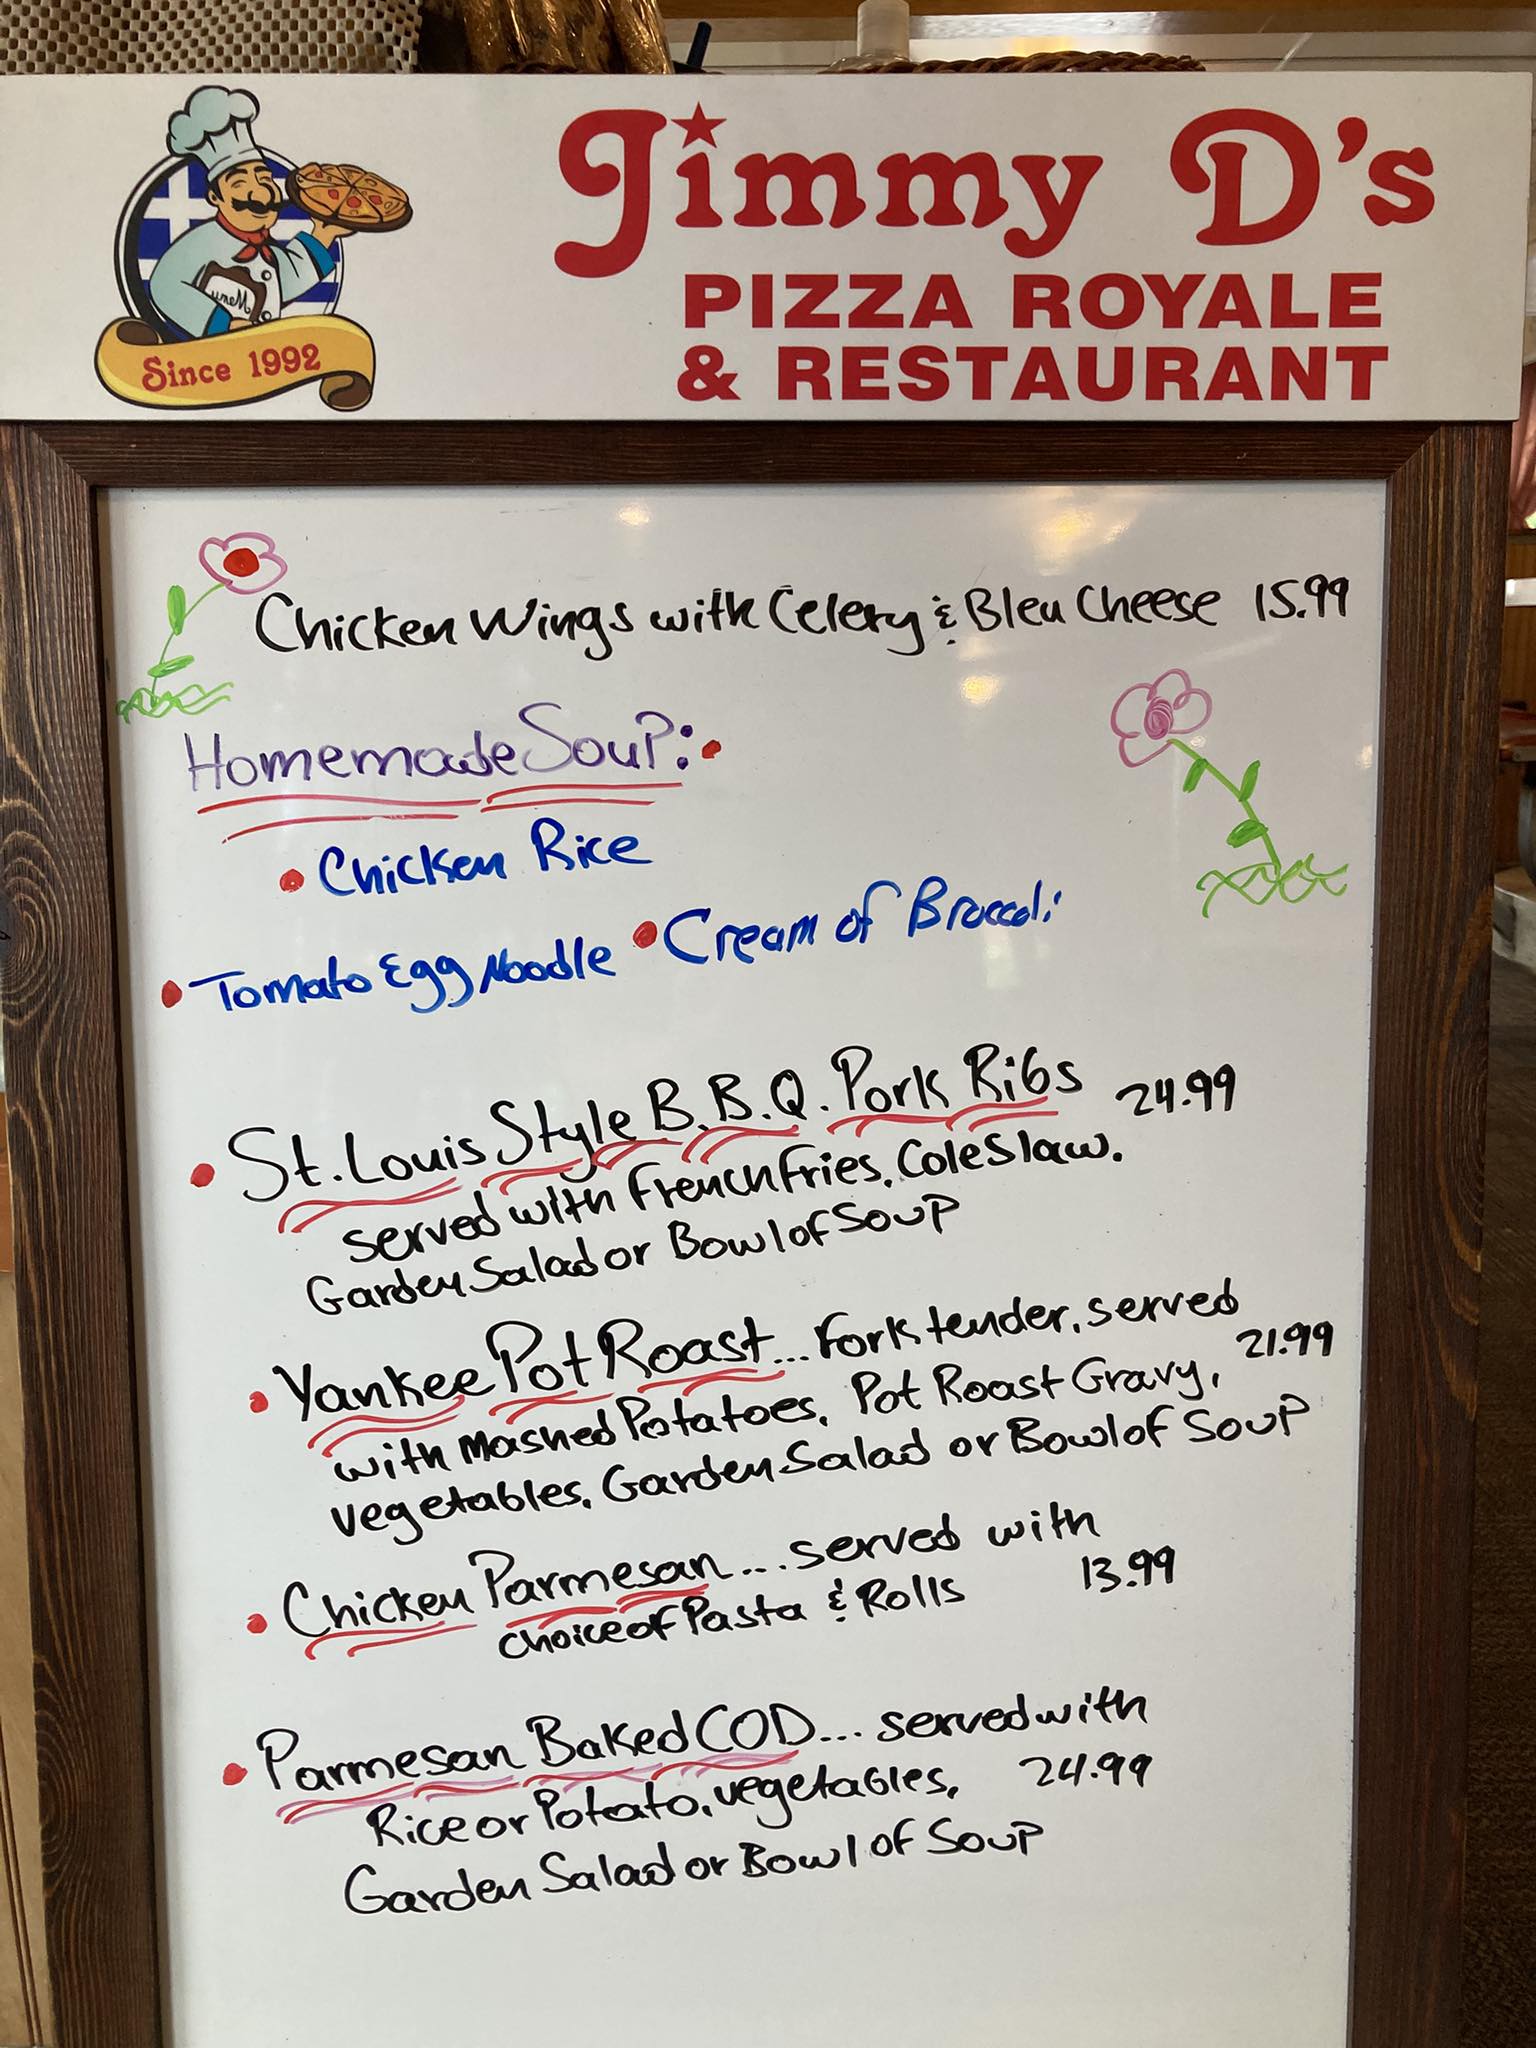 Jimmy D's
PIZZA ROYALE
& RESTAURANT
Menu
Since 1992
Chicken Wings with Celery & Bleu Cheese 15.99
Homemade Soup:
• Chicken Rice
• Tomato Egg Noodle • Cream of Broccoli
• St. Louis Style B.B.Q. Pork Ribs 24.99
served with French Fries, Coleslaw.
Garden Salad or Bowl of Soup
• Yankee Pot Roast... Fork tender, served
with Mashed Potatoes, Pot Roast Gravy, 21.99
vegetables, Garden Salad or Bowl of Soup
• Chicken Parmesan.... served with
choice of Pasta & Rolls 13.99
• Parmesan Baked COD... served with
Rice or Potato, vegetables, 24.99
Garden Salad or Bowl of Soup